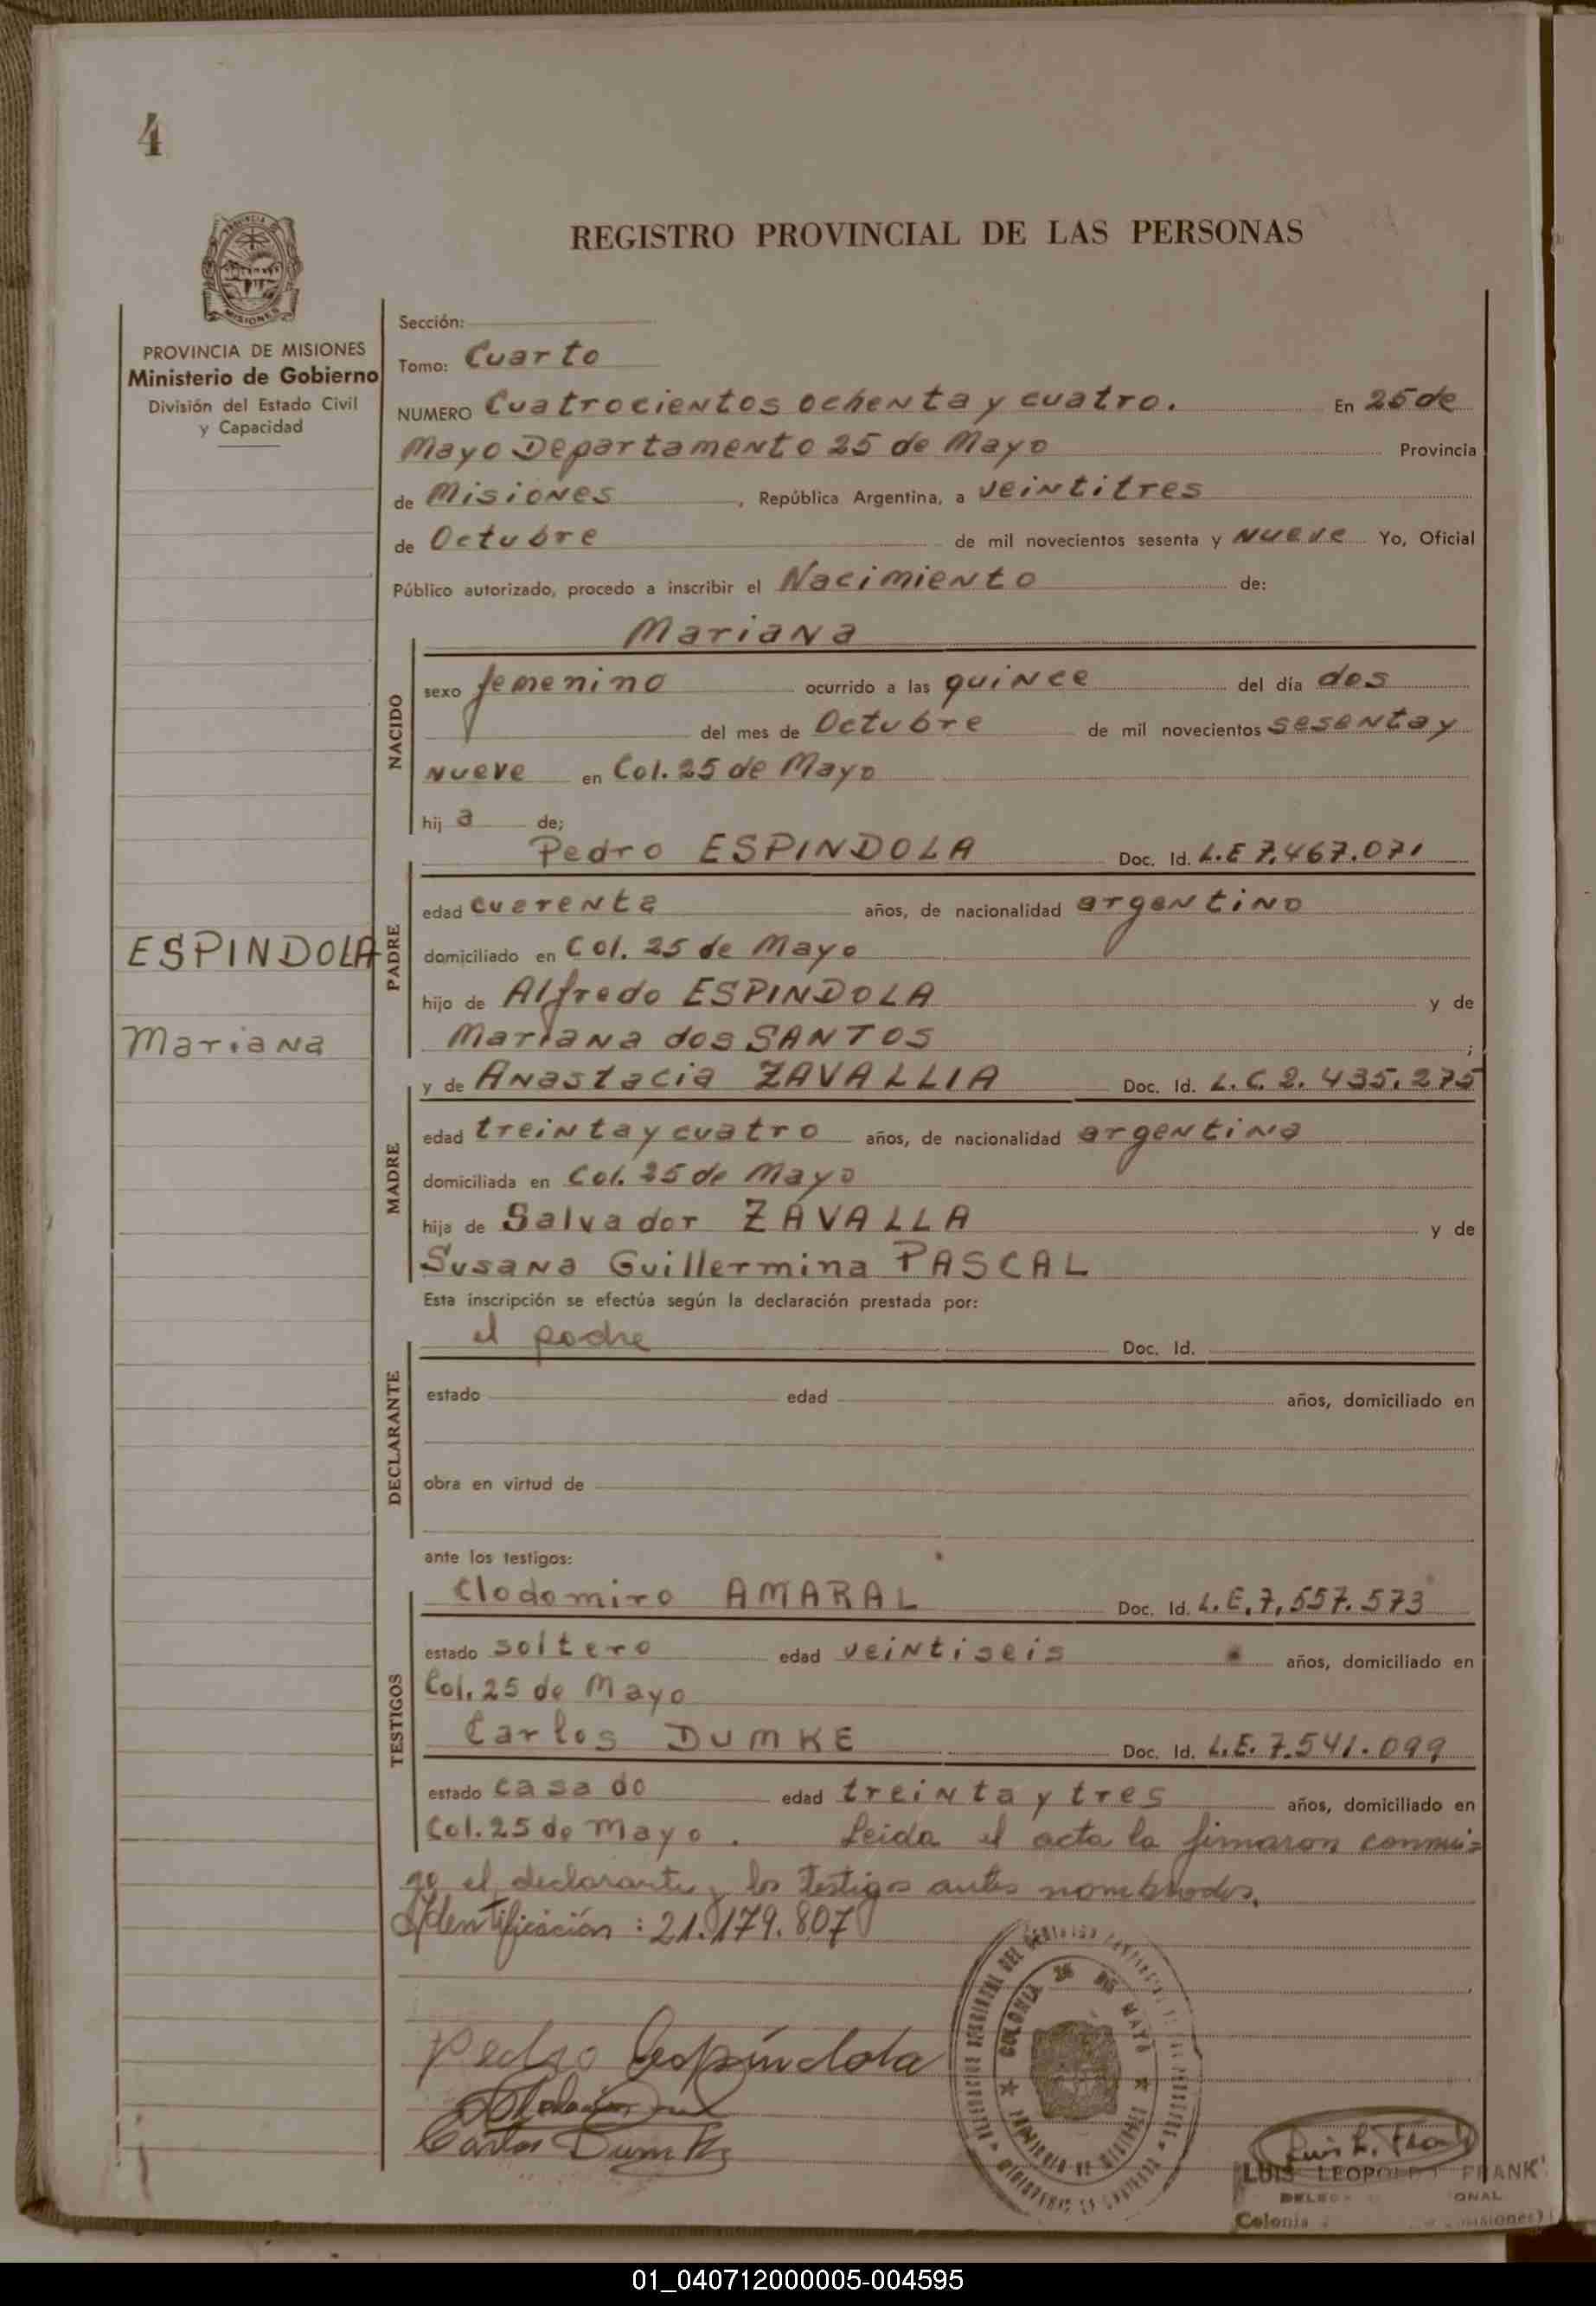 4
REGISTRO PROVINCIAL DE LAS PERSONAS
PROVINCIA
MISIONES
PROVINCIA DE MISIONES
Ministerio de Gobierno
División del Estado Civil
y Capacidad
Sección:
Tomo: Cuarto
NUMERO Cuatrocientos ochenta y cuatro. En 25 de
Mayo Departamento 25 de Mayo Provincia
de Misiones, República Argentina, a veintitres
de Octubre de mil novecientos sesenta y nueve Yo, Oficial
Público autorizado, procedo a inscribir el Nacimiento de:
Mariana
NACIDO
sexo femenino ocurrido a las quince del día dos
del mes de Octubre de mil novecientos sesenta y
nueve en Col. 25 de Mayo
hij a de;
Pedro ESPINDOLA Doc. Id. L.E 7.467.071
PADRE
edad cuerenta años, de nacionalidad argentino
domiciliado en Col. 25 de Mayo
hijo de Alfredo ESPINDOLA y de
Mariana dos SANTOS ;
ESPINDOLA
Mariana
y de Anastacia ZAVALLIA Doc. Id. L.C. 2.435.275
MADRE
edad treinta y cuatro años, de nacionalidad argentina
domiciliada en Col. 25 de Mayo
hija de Salvador ZAVALLA y de
Susana Guillermina PASCAL
Esta inscripción se efectúa según la declaración prestada por:
el padre Doc. Id.
DECLARANTE
estado edad años, domiciliado en
obra en virtud de
ante los testigos:
Clodomiro AMARAL Doc. Id. L.E. 7.557.573
TESTIGOS
estado soltero edad veintiseis años, domiciliado en
Col. 25 de Mayo
Carlos DUMKE Doc. Id. L.E. 7.541.099
estado casado edad treinta y tres años, domiciliado en
Col. 25 de Mayo. Leida el acta la firmaron conmi=
go el declarante y los testigos antes nombrados.
Identificación: 21.179.807
COLONIA 25 DE MAYO
PROVINCIA DE MISIONES
Pedro Espíndola
Carlos Dumke
Luis L. Frank
LUIS LEOPOLDO FRANK
Colonia
01_040712000005-004595